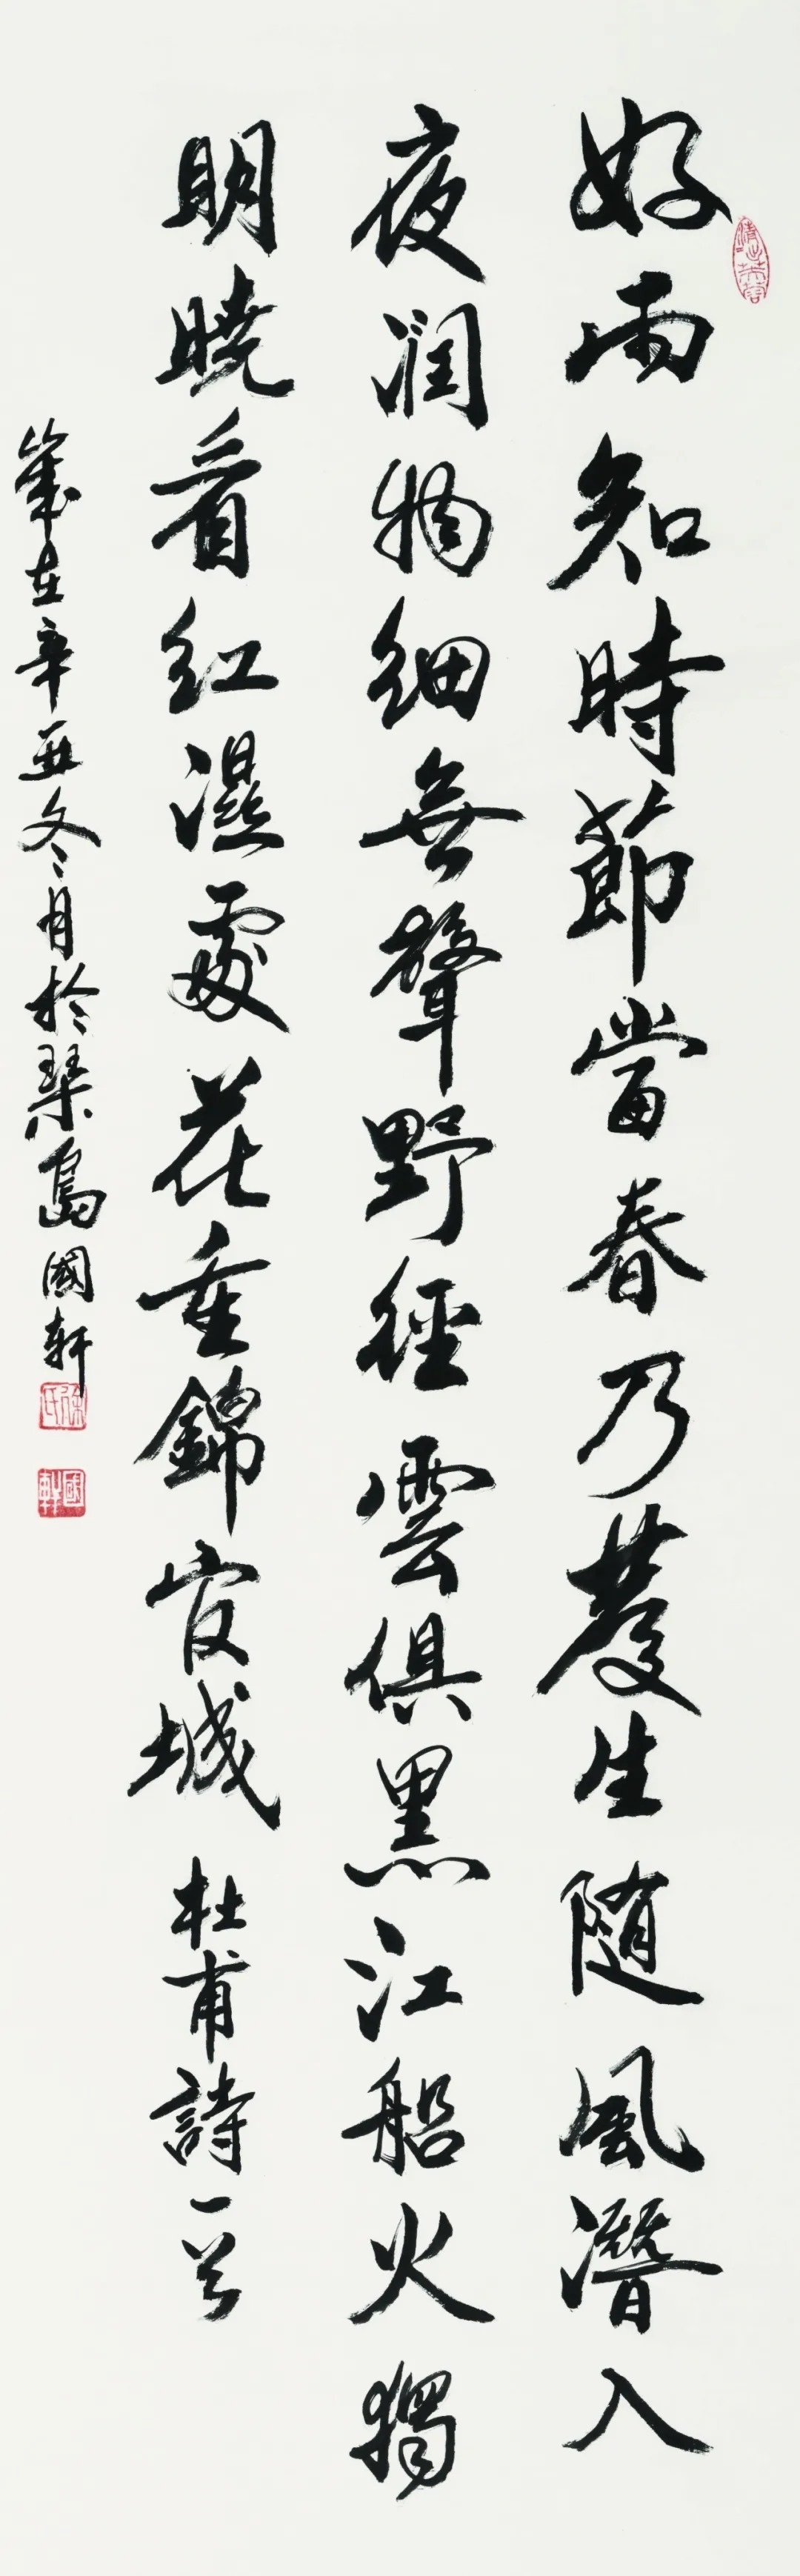 好雨知時節當春乃發生随風潛入
夜润物細無聲野徑雲俱黑江船火獨
明曉看红濕處花重錦官城 杜甫詩一首
歲在辛丑冬月於琴島國軒
徐氏
國軒